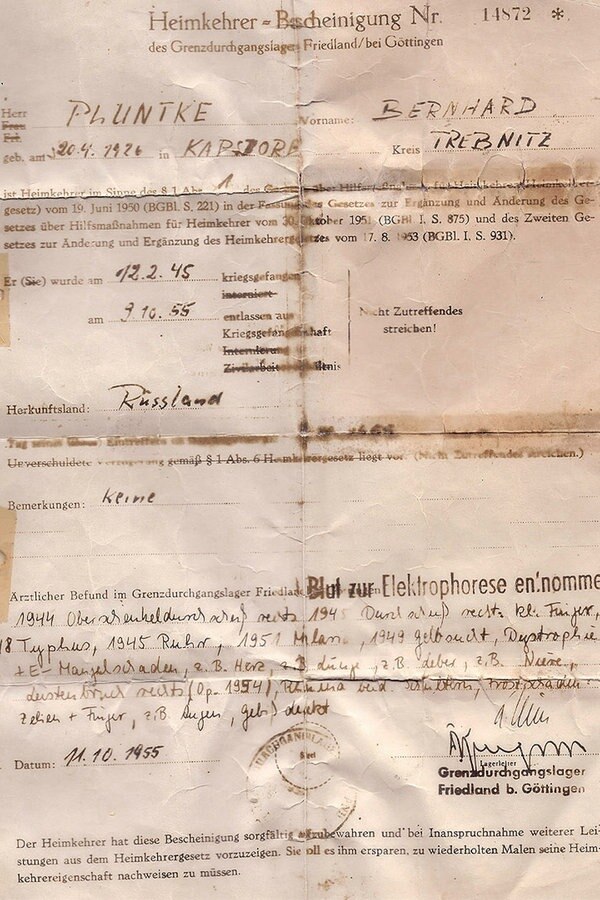 Heimkehrer-Bescheinigung Nr. 14872 *
des Grenzdurchgangslager Friedland/bei Göttingen
Herr
Frau
Frl.
PLUNTKE
Vorname: BERNHARD
geb. am 20.4.1926 in KAPSDORF Kreis TREBNITZ
ist Heimkehrer im Sinne des § 1 Abs. 1 des Gesetzes über Hilfsmaßnahmen für Heimkehrer (Heimkehrer-
gesetz) vom 19. Juni 1950 (BGBl. S. 221) in der Fassung des Gesetzes zur Ergänzung und Änderung des Ge-
setzes über Hilfsmaßnahmen für Heimkehrer vom 30. Oktober 1951 (BGBl. I. S. 875) und des Zweiten Ge-
setzes zur Änderung und Ergänzung des Heimkehrergesetzes vom 17. 8. 1953 (BGBl. I. S. 931).
Er (Sie) wurde am 12.2.45 kriegsgefangen
interniert
am 9.10.55 entlassen aus
Kriegsgefangenschaft
Internierung
Zivilarbeitsverhältnis
Nicht Zutreffendes
streichen!
Herkunftsland: Russland
Unverschuldete Verzögerung gemäß § 1 Abs. 6 Heimkehrergesetz liegt vor. (Nicht Zutreffendes streichen.)
Bemerkungen: keine
Ärztlicher Befund im Grenzdurchgangslager Friedland
Blut zur Elektrophorese entnomme
1944 Oberschenkeldurchschuß rechts 1945 Durchschuß rechts kl. Finger,
Typhus, 1945 Ruhr, 1951 Malaria, 1949 Gelbsucht, Dystrophie
+ E- Mangelschaden, z.B. Herz, z.B. Lunge, z.B. Leber, z.B. Niere,
Leistenbruch rechts (Op. 1954), Rheuma beid. Schultern, Frostschäden
Zehen + Finger, z.B. Augen, Gebiß defekt
Datum: 11.10.1955
Lagerleiter
Grenzdurchgangslager
Friedland b. Göttingen
Der Heimkehrer hat diese Bescheinigung sorgfältig aufzubewahren und bei Inanspruchnahme weiterer Lei-
stungen aus dem Heimkehrergesetz vorzuzeigen. Sie soll es ihm ersparen, zu wiederholten Malen seine Heim-
kehrereigenschaft nachweisen zu müssen.